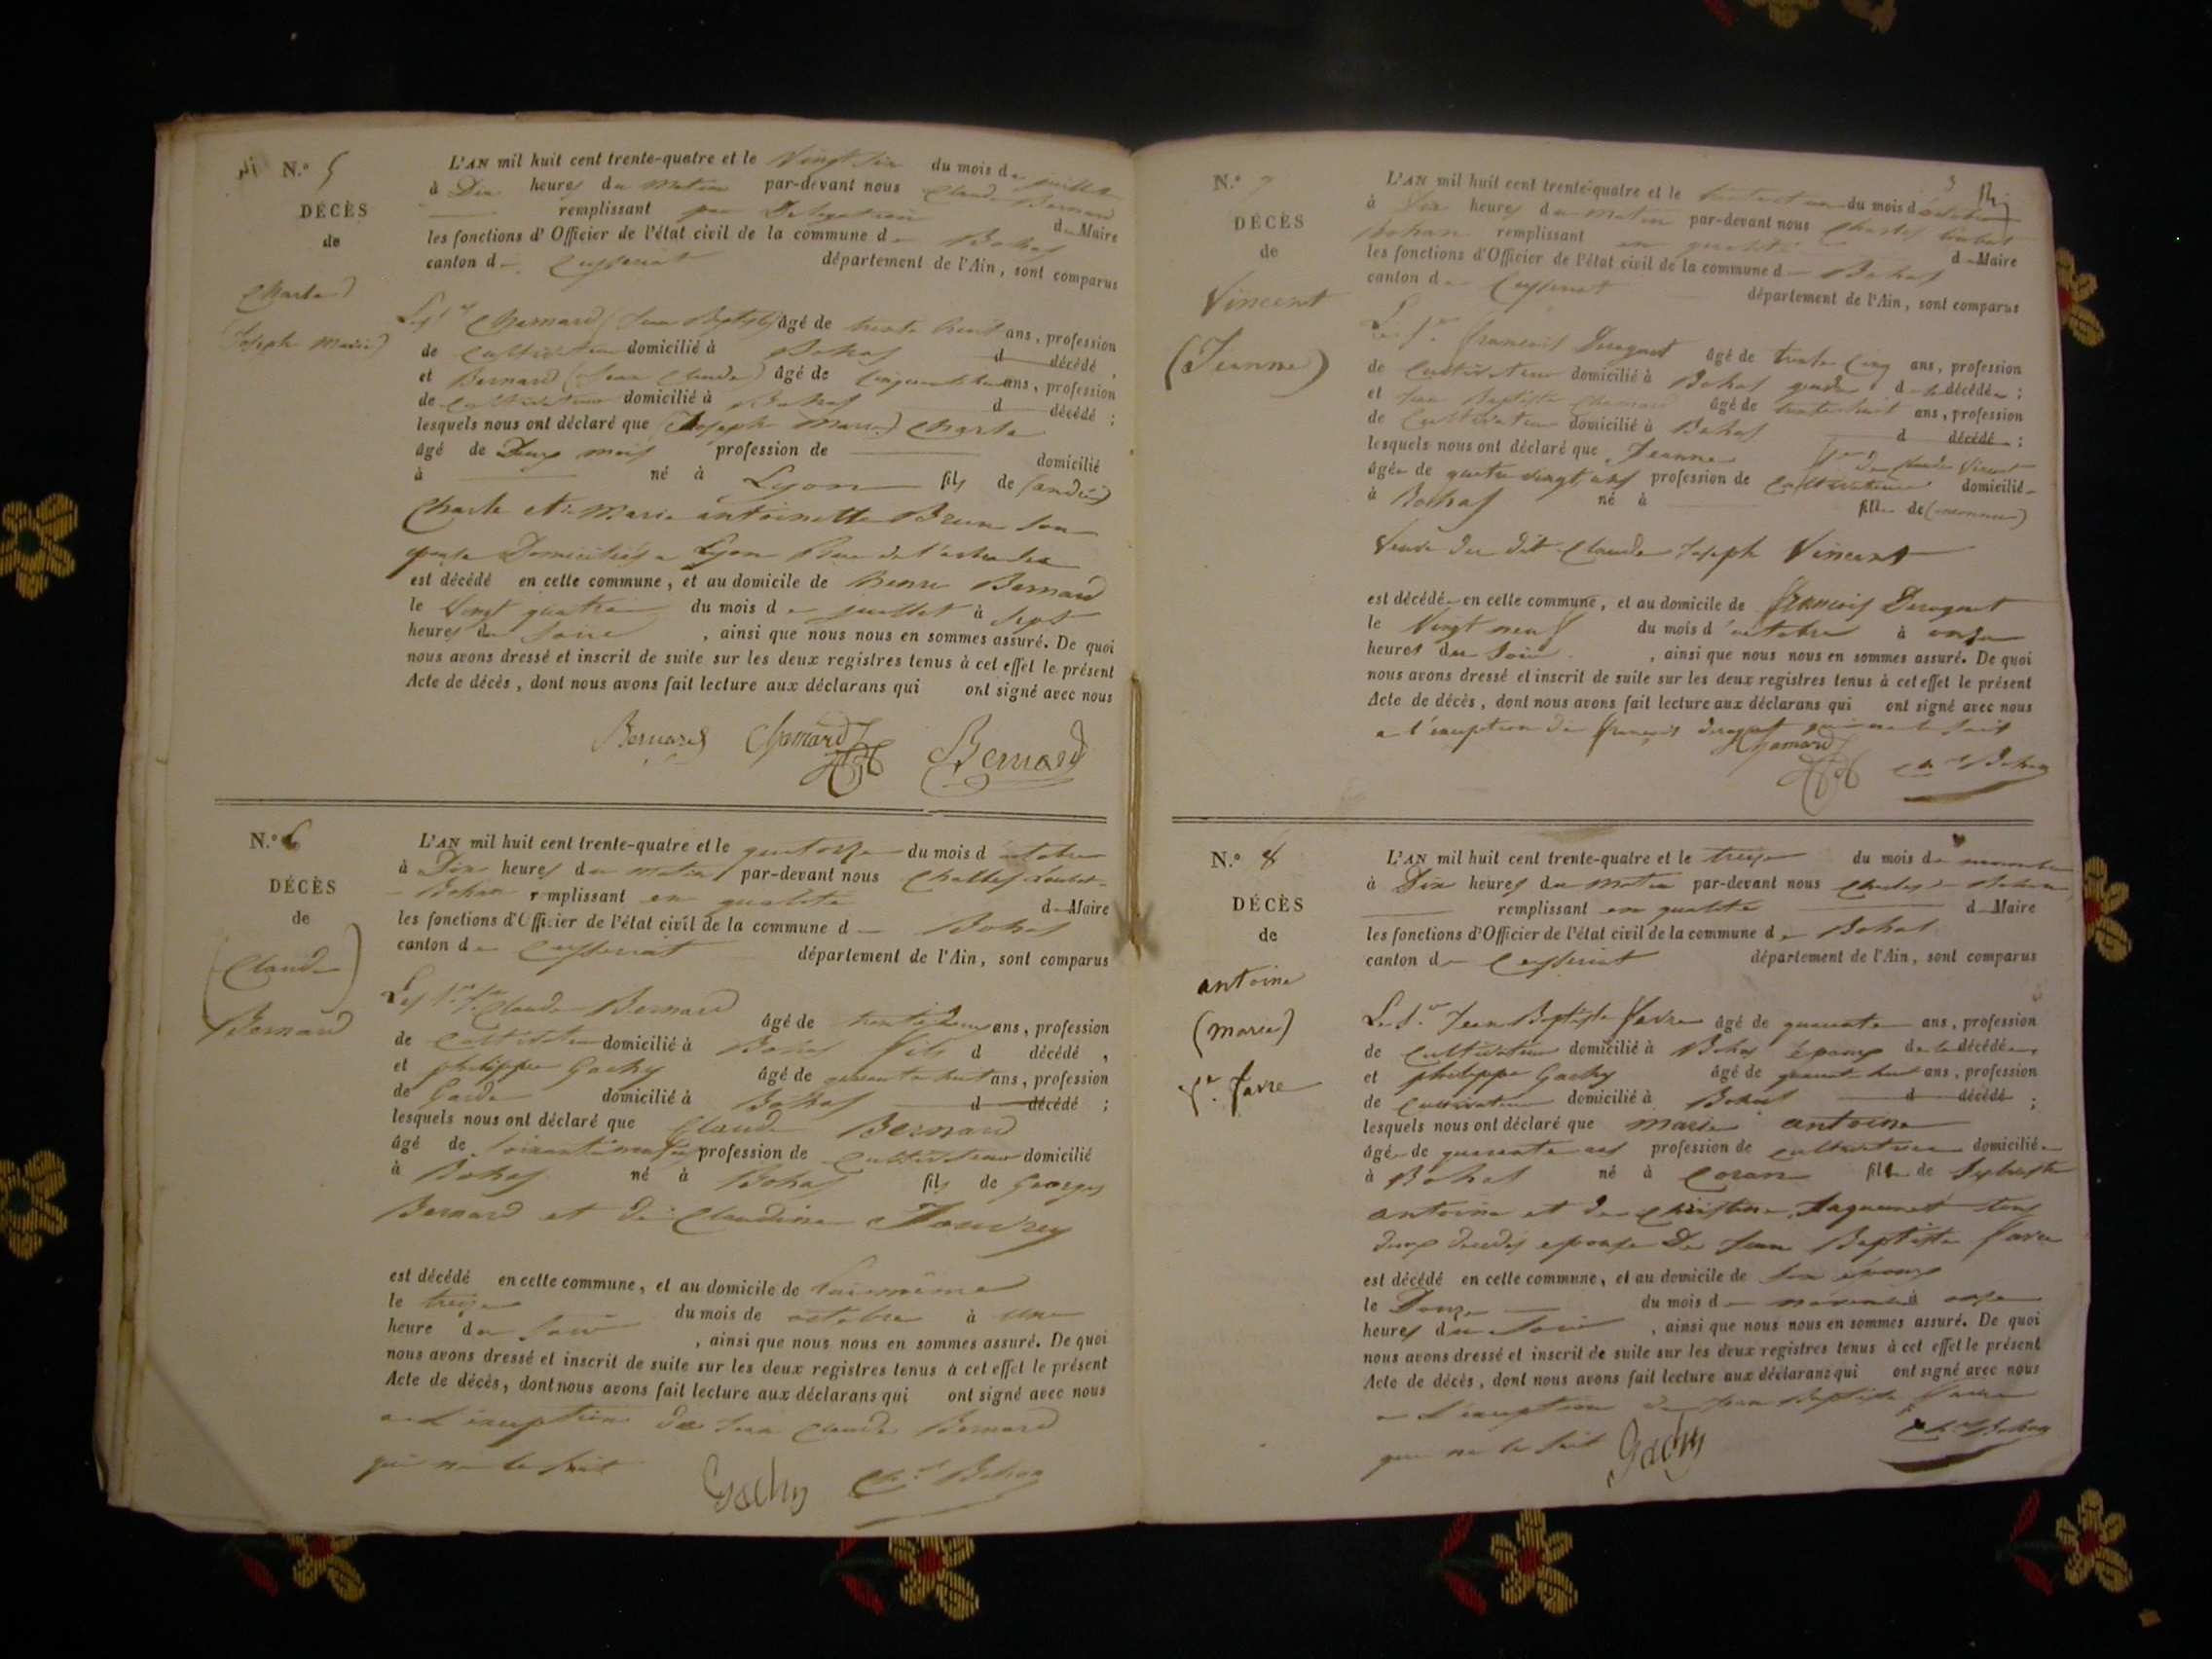 N.º 5
DÉCÈS
de
Charle
(Joseph Marie)
L'AN mil huit cent trente-quatre et le Vingt six du mois de juillet
à Dix heures du Matin par-devant nous Claude Bernard
remplissant par Delegation de Maire
les fonctions d'Officier de l'état civil de la commune de Bohas
canton de Ceyseriat département de l'Ain, sont comparus
Les Srs Chamard (Jean Baptiste) âgé de trente huit ans, profession
de Cultivateur domicilié à Bohas d décédé,
et Bernard (Jean Claude) âgé de ans, profession
de Cultivateur domicilié à Bohas d décédé;
lesquels nous ont déclaré que Joseph Marie Charle
âgé de Deux mois profession de domicilié
à né à Lyon fils de (andré)
Charle et Marie antoinette Brun son
épouse Domiciliés a Lyon Rue de
est décédé en cette commune, et au domicile de Bernard
le Vingt quatre du mois de juillet à Sept
heures du Soire, ainsi que nous nous en sommes assuré. De quoi
nous avons dressé et inscrit de suite sur les deux registres tenus à cet effet le présent
Acte de décès, dont nous avons fait lecture aux déclarans qui ont signé avec nous
Bernard Chamard Bernard
N.º 6
DÉCÈS
de
(Claude)
Bernard
L'AN mil huit cent trente-quatre et le quatorze du mois d'octobre
à Dix heures du matin par-devant nous Charles Loubat
Bohan remplissant en qualité de Maire
les fonctions d'Officier de l'état civil de la commune de Bohas
canton de Ceyseriat département de l'Ain, sont comparus
Les Srs Claude Bernard âgé de ans, profession
de Cultivateur domicilié à Bohas fils d décédé,
et philippe Gachy âgé de quarante huit ans, profession
de Garde domicilié à Bohas d décédé;
lesquels nous ont déclaré que Claude Bernard
âgé de profession de Cultivateur domicilié
à Bohas né à Bohas fils de Georges
Bernard et de Claudine
est décédé en cette commune, et au domicile de lui même
le treize du mois de octobre à une
heure du soir, ainsi que nous nous en sommes assuré. De quoi
nous avons dressé et inscrit de suite sur les deux registres tenus à cet effet le présent
Acte de décès, dont nous avons fait lecture aux déclarans qui ont signé avec nous
a l'exception de Jean Claude Bernard
qui ne le sait
Gachy Ch.les Bohan
N.º 7
DÉCÈS
de
Vincent
(Jeanne)
3
L'AN mil huit cent trente-quatre et le trente et un du mois d'octobre
à Dix heures du matin par-devant nous Charles Loubat
Bohan remplissant en qualité de Maire
les fonctions d'Officier de l'état civil de la commune de Bohas
canton de Ceyseriat département de l'Ain, sont comparus
Les Srs francois Durognat âgé de trente Cinq ans, profession
de Cultivateur domicilié à Bohas gendre de la décédée;
et Jean Baptiste Chamard âgé de trente huit ans, profession
de Cultivateur domicilié à Bohas d décédé;
lesquels nous ont déclaré que Jeanne Vincent
âgée de quatre vingt ans profession de Cultivateur domiciliée
à Bohas né à fille de (inconnus)
Veuve du dit Claude Joseph Vincent
est décédée en cette commune, et au domicile de francois Durognat
le Vingt neuf du mois d'octobre à onze
heures du Soir, ainsi que nous nous en sommes assuré. De quoi
nous avons dressé et inscrit de suite sur les deux registres tenus à cet effet le présent
Acte de décès, dont nous avons fait lecture aux déclarans qui ont signé avec nous
a l'exception de françois Durognat qui ne le sait
Chamard Ch.les Bohan
N.º 8
DÉCÈS
de
antoine
(marie)
fe. favre
L'AN mil huit cent trente-quatre et le treize du mois de novembre
à Dix heures du Matin par-devant nous Charles Bohan
remplissant en qualité de Maire
les fonctions d'Officier de l'état civil de la commune de Bohas
canton de Ceyseriat département de l'Ain, sont comparus
Les Srs Jean Baptiste favre âgé de quarante ans, profession
de Cultivateur domicilié à Bohas époux de la décédée,
et philippe Gachy âgé de quarante huit ans, profession
de Cultivateur domicilié à Bohas d décédé;
lesquels nous ont déclaré que marie antoine
âgée de quarante ans profession de cultivatrice domiciliée
à Bohas né à Coran fille de Sylvestre
antoine et de Christine Jaquemet tous
deux décédés epouse De Jean Baptiste favre
est décédé en cette commune, et au domicile de Son époux
le Douze du mois de novembre à onze
heures du Soir, ainsi que nous nous en sommes assuré. De quoi
nous avons dressé et inscrit de suite sur les deux registres tenus à cet effet le présent
Acte de décès, dont nous avons fait lecture aux déclarans qui ont signé avec nous
a l'exception de Jean Baptiste favre
qui ne le sait Gachy Ch.les Bohan